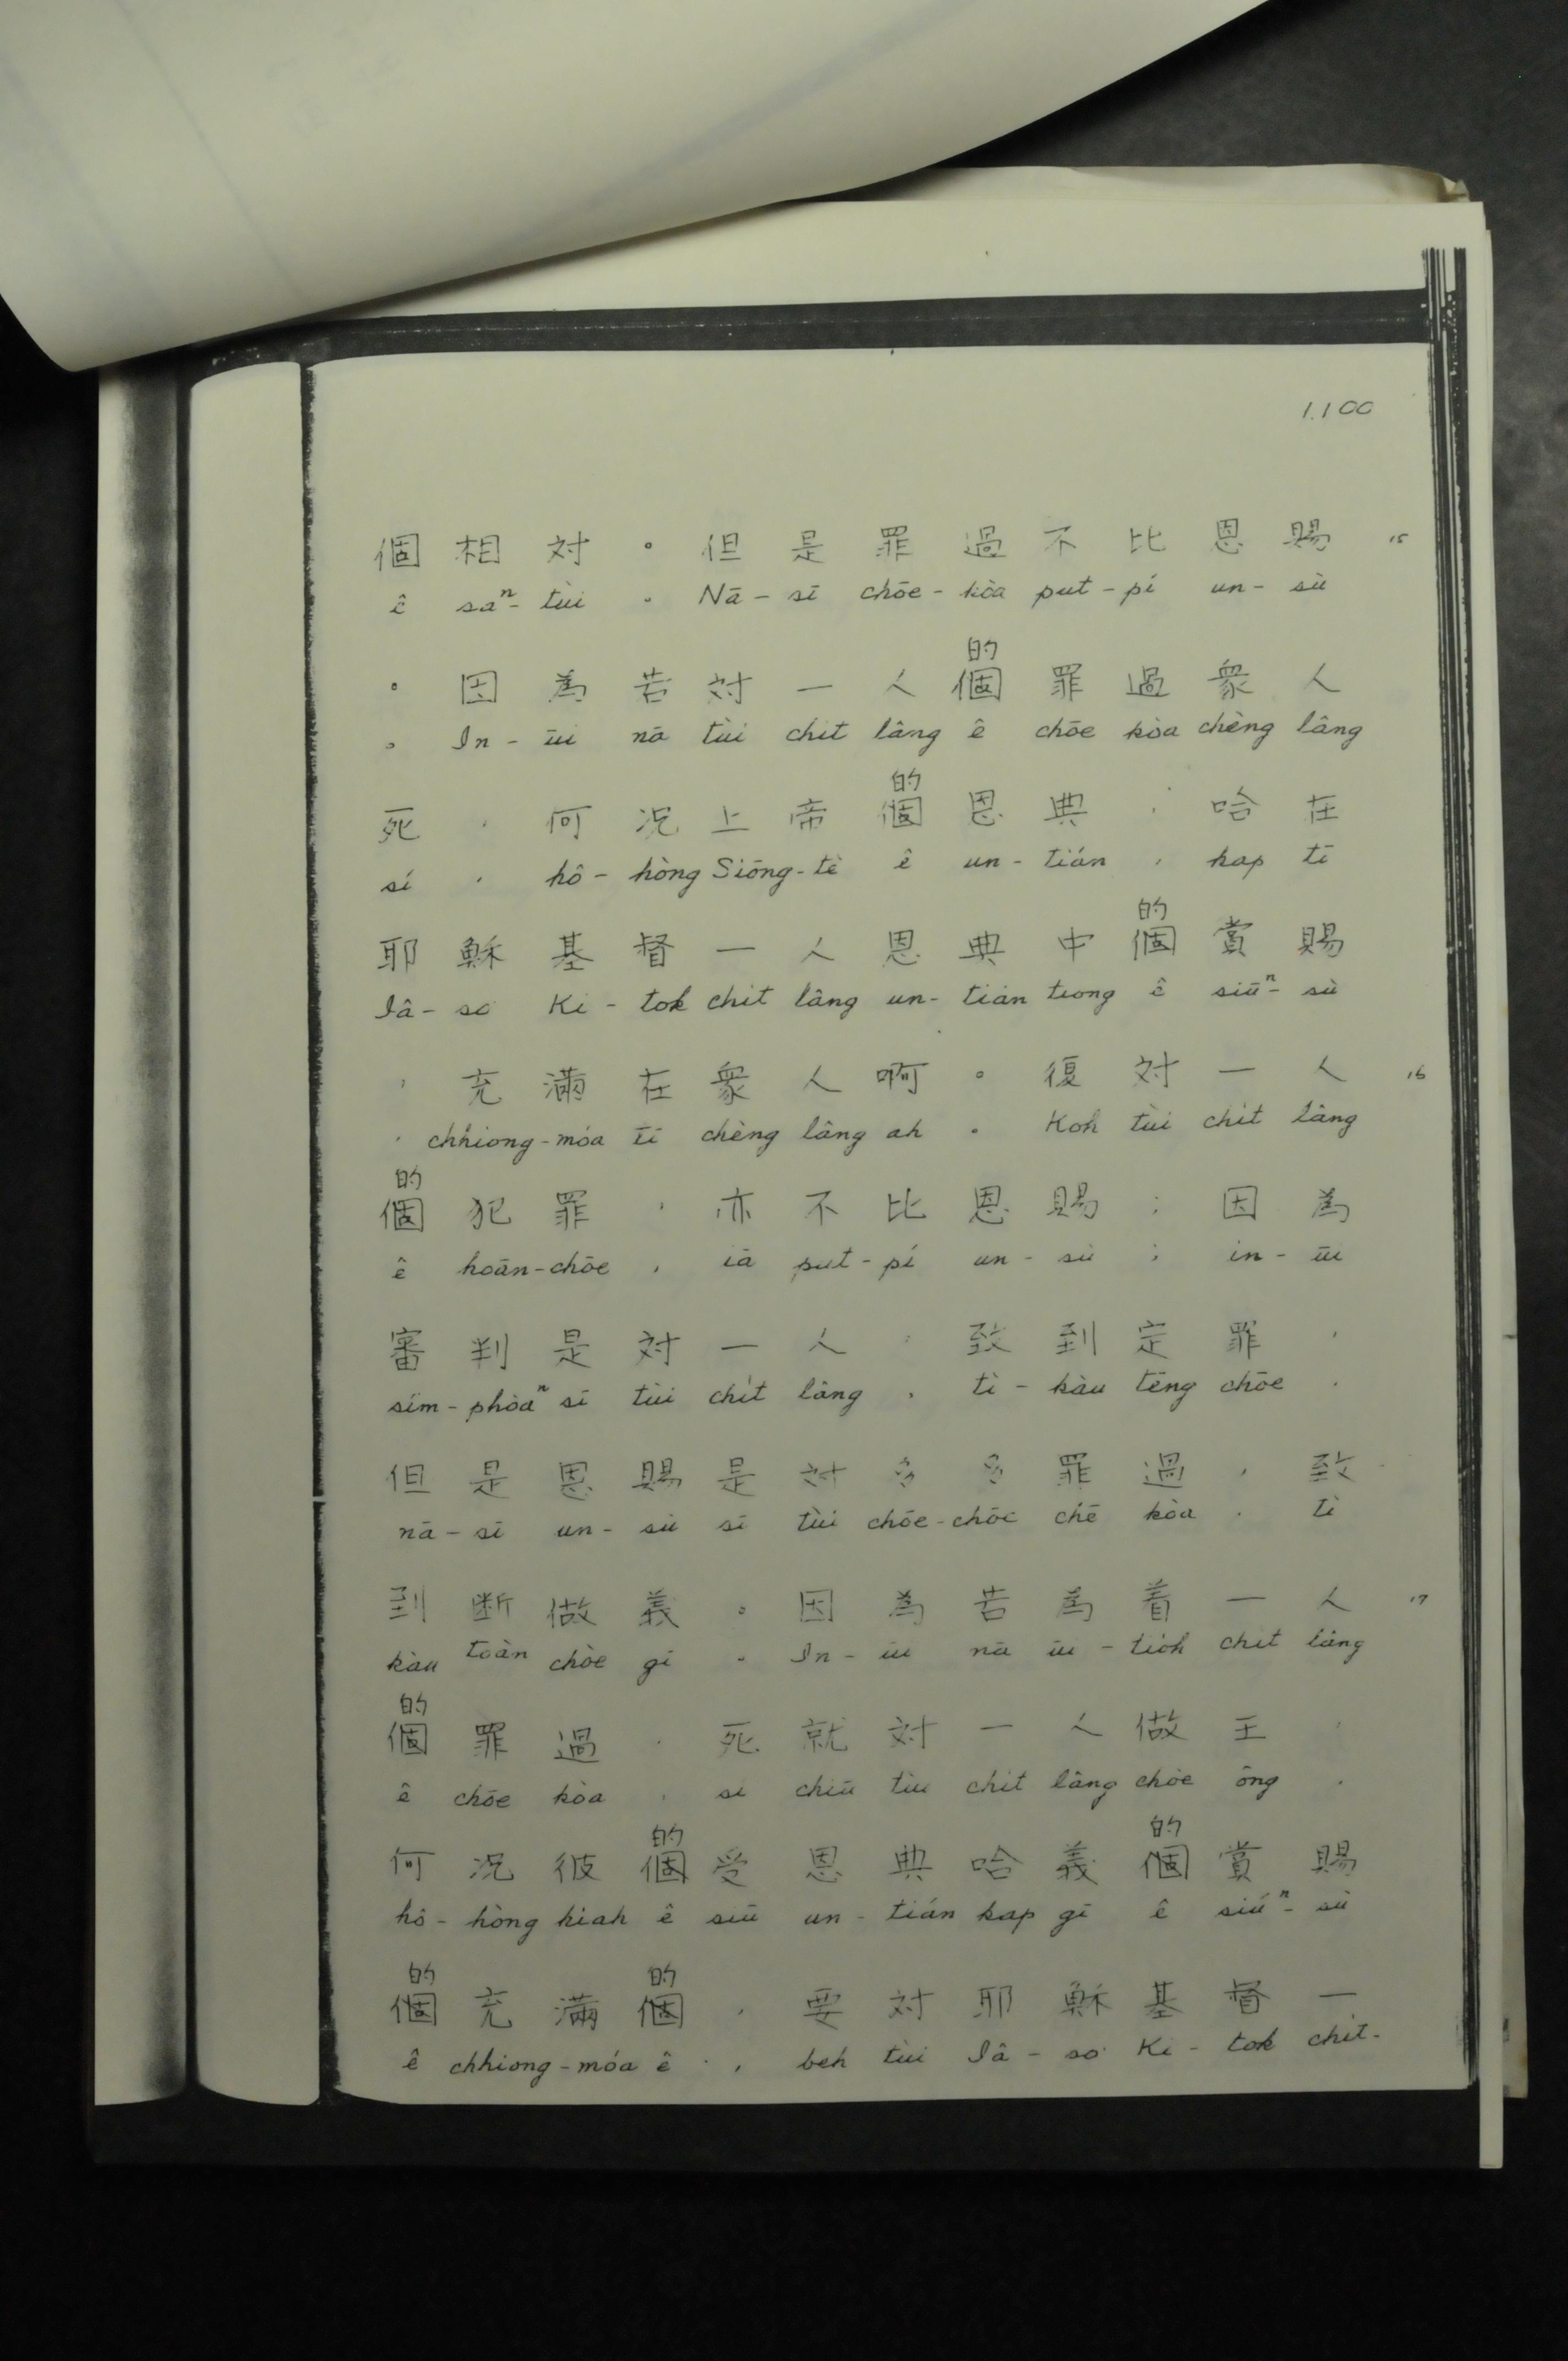 1.100
個相対。但是罪過不比恩賜 15
ê saⁿ-tùi 。 Nā-sī chōe-kòa put-pí un-sù
的
。因為若対一人個罪過衆人
。 In-ūi nā tùi chit lâng ê chōe kòa chèng lâng
的
死，何况上帝個恩典，哈在
sí , hô-hòng Siōng-tè ê un-tián , kap tī
的
耶穌基督一人恩典中個賞賜
Iâ-so Ki-tok chit lâng un-tián tiong ê siúⁿ-sù
，充滿在衆人啊。復対一人 16
, chhiong-móa tī chèng lâng ah 。 Koh tùi chit lâng
的
個犯罪，亦不比恩賜；因為
ê hoān-chōe , iā put-pí un-sù ; in-ūi
審判是対一人，致到定罪，
sím-phòaⁿ sī tùi chit lâng , tì-kàu tēng chōe ,
但是恩賜是対多多罪過，致
nā-sī un-sù sī tùi chōe-chōe chē kòa , tì
到断做義。因為若為着一人 17
kàu toàn chòe gī 。 In-ūi nā ūi-tio̍h chit lâng
的
個罪過，死就対一人做王，
ê chōe kòa , sí chiū tùi chit lâng chòe ông ,
的 的
何况彼個受恩典哈義個賞賜
hô-hòng hiah ê siū un-tián kap gī ê siúⁿ-sù
的 的
個充滿個，要対耶穌基督一
ê chhiong-móa ê , beh tùi Iâ-so Ki-tok chit-